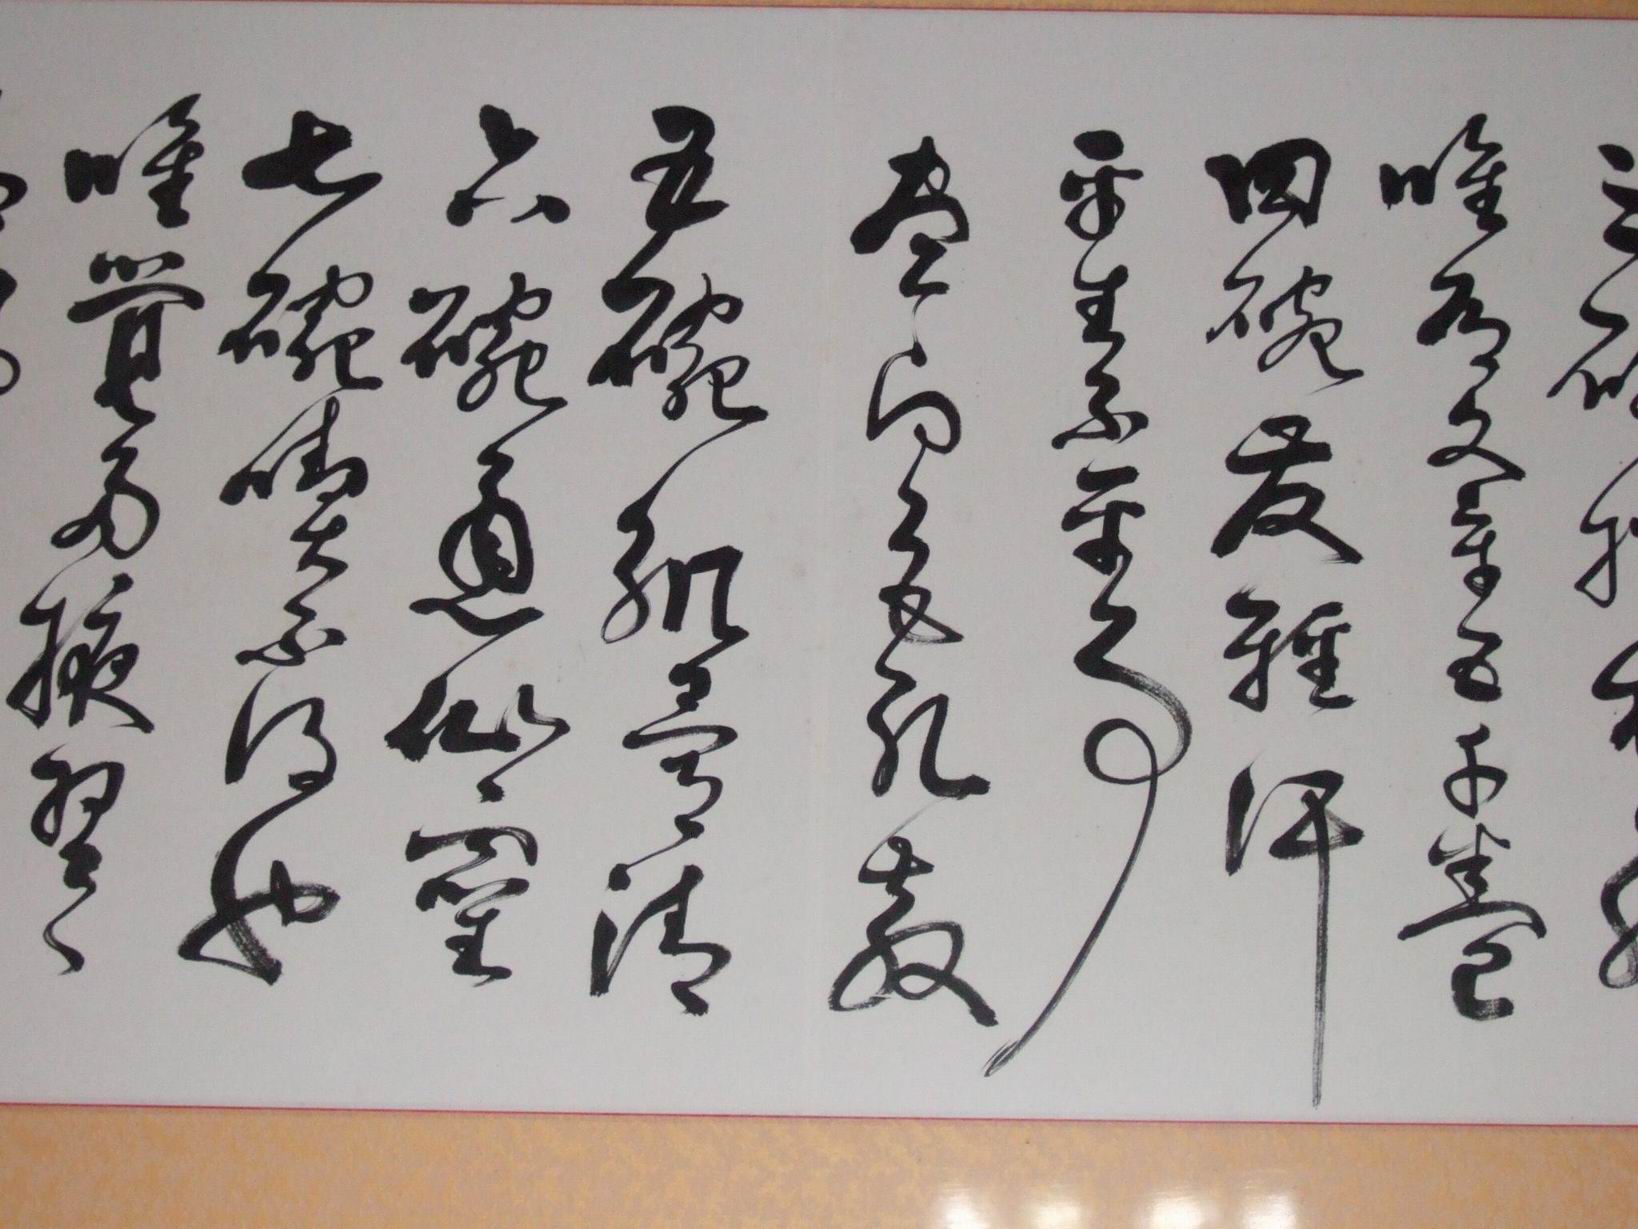 三碗搜枯腸
唯有文字五千卷
四碗發輕汗
平生不平事
盡向毛孔散
五碗肌骨清
六碗通仙靈
七碗喫不得也
唯覺兩腋習習